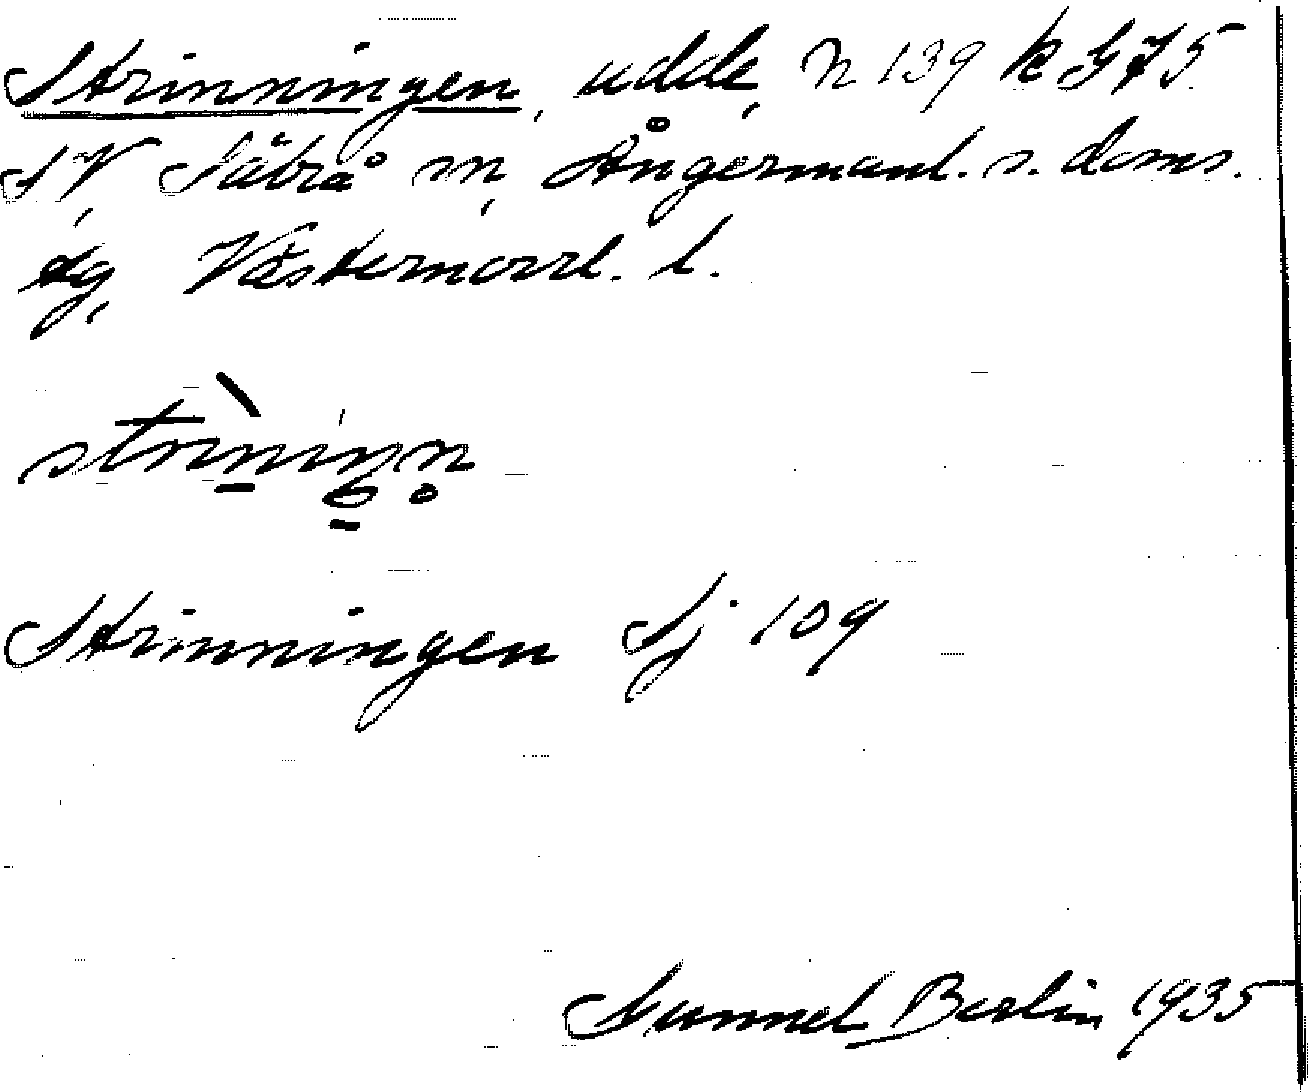 Strinningen, udde, n 139 k G 75
SV, Säbrå sn, Ångermanl. s. doms.
tg, Västernorrl. l.
strìniŋn̥
Strinningen Sj 109
Gunnel Berlin 1935